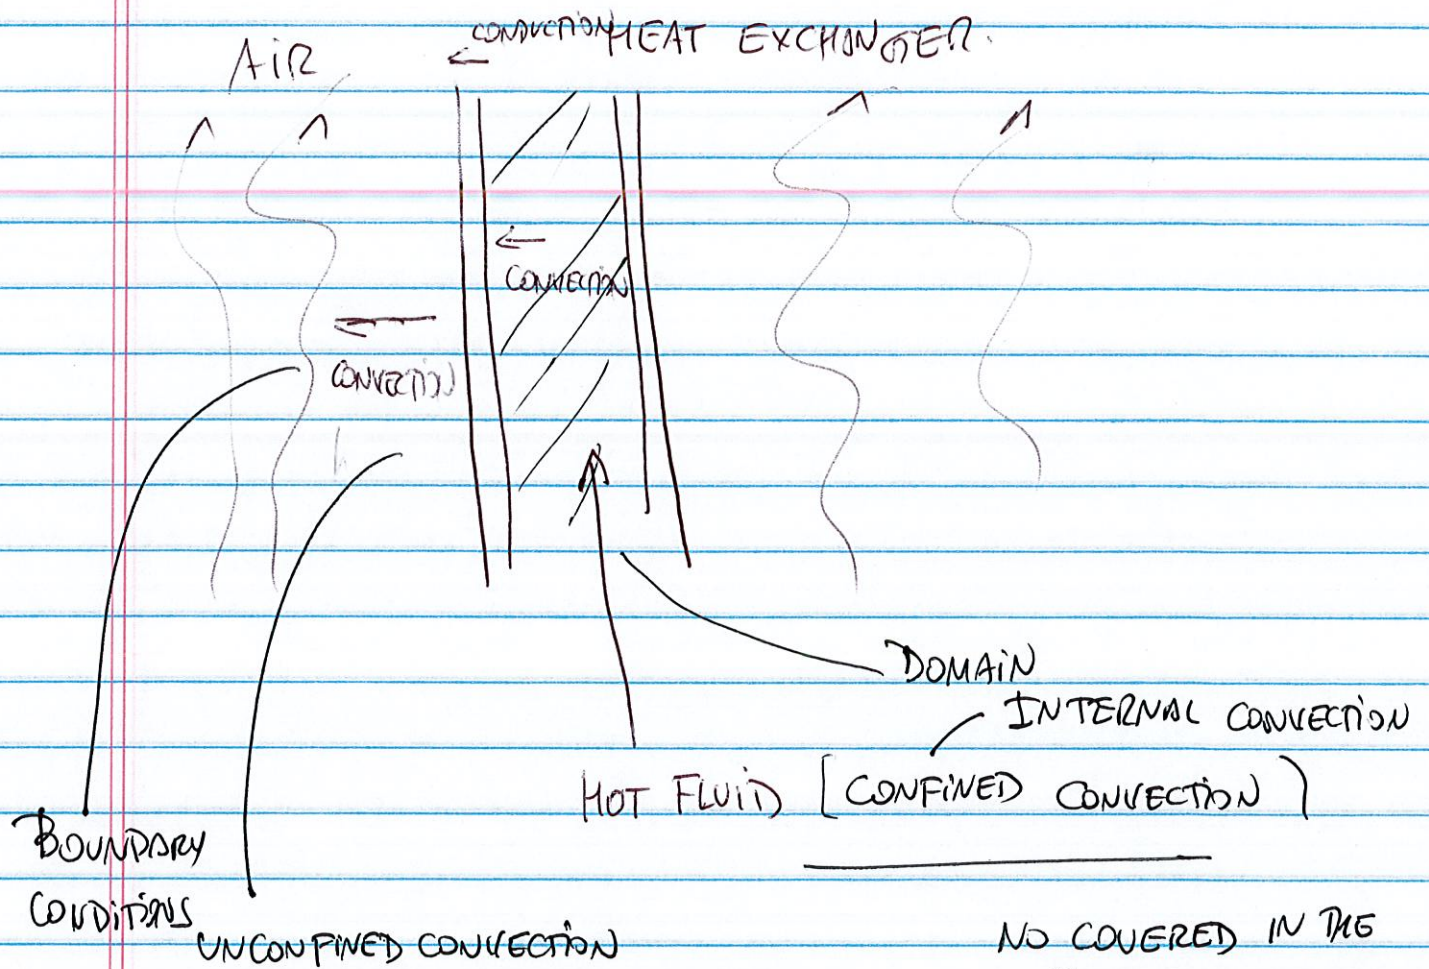 AIR
CONDUCTION
HEAT EXCHANGER.
CONVECTION
CONVECTION
h
DOMAIN
INTERNAL CONVECTION
HOT FLUID [CONFINED CONVECTION]
BOUNDARY
CONDITIONS
UNCONFINED CONVECTION
NO COVERED IN THE